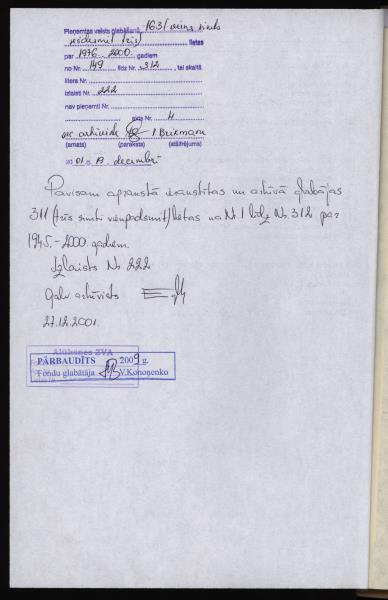 Pieņemtas valsts glabāšanā 163 (viens simts
sešdesmit trīs) lietas
par 1976.-2000. gadiem
no Nr. 149 līdz Nr. 312, tai skaitā
litera Nr.
izlaisti Nr. 222
nav pieņemti Nr.
akts Nr. 4
vec. arhīviste I. Brikmane
(amats) (paraksts) (atšifrējums)
2001. g. 19. decembrī
Pavisam aprakstā ierakstītas un arhīvā glabājas
311 (trīs simti vienpadsmit) lietas no Nr. 1 līdz Nr. 312 par
1945.-2000. gadiem
Izlaists Nr. 222
Galv. arhīvists
27.12.2001
Alūksnes ZVA
PĀRBAUDĪTS 2009 g.
Fondu glabātāja V.Kononenko